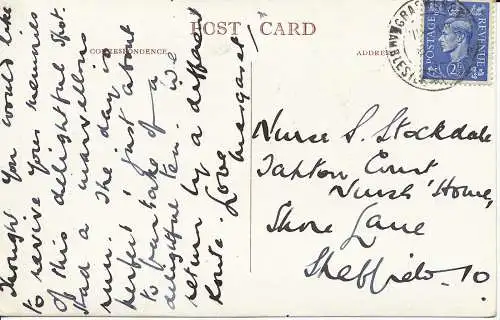 POST CARD
CORRESPONDENCE
ADDRESS
GRAS
AMBLESIDE
POSTAGE
REVENUE
2½D
Thought you would like
to revive your memories
of this delightful spot.
Had a marvellous
run. The day is
perfect & just about
to partake of a
delightful tea. We
return by a different
route. Love
Margaret
Nurse S. Stockdale
Tapton Court
Nurses' Home,
Shore Lane
Sheffield. 10.